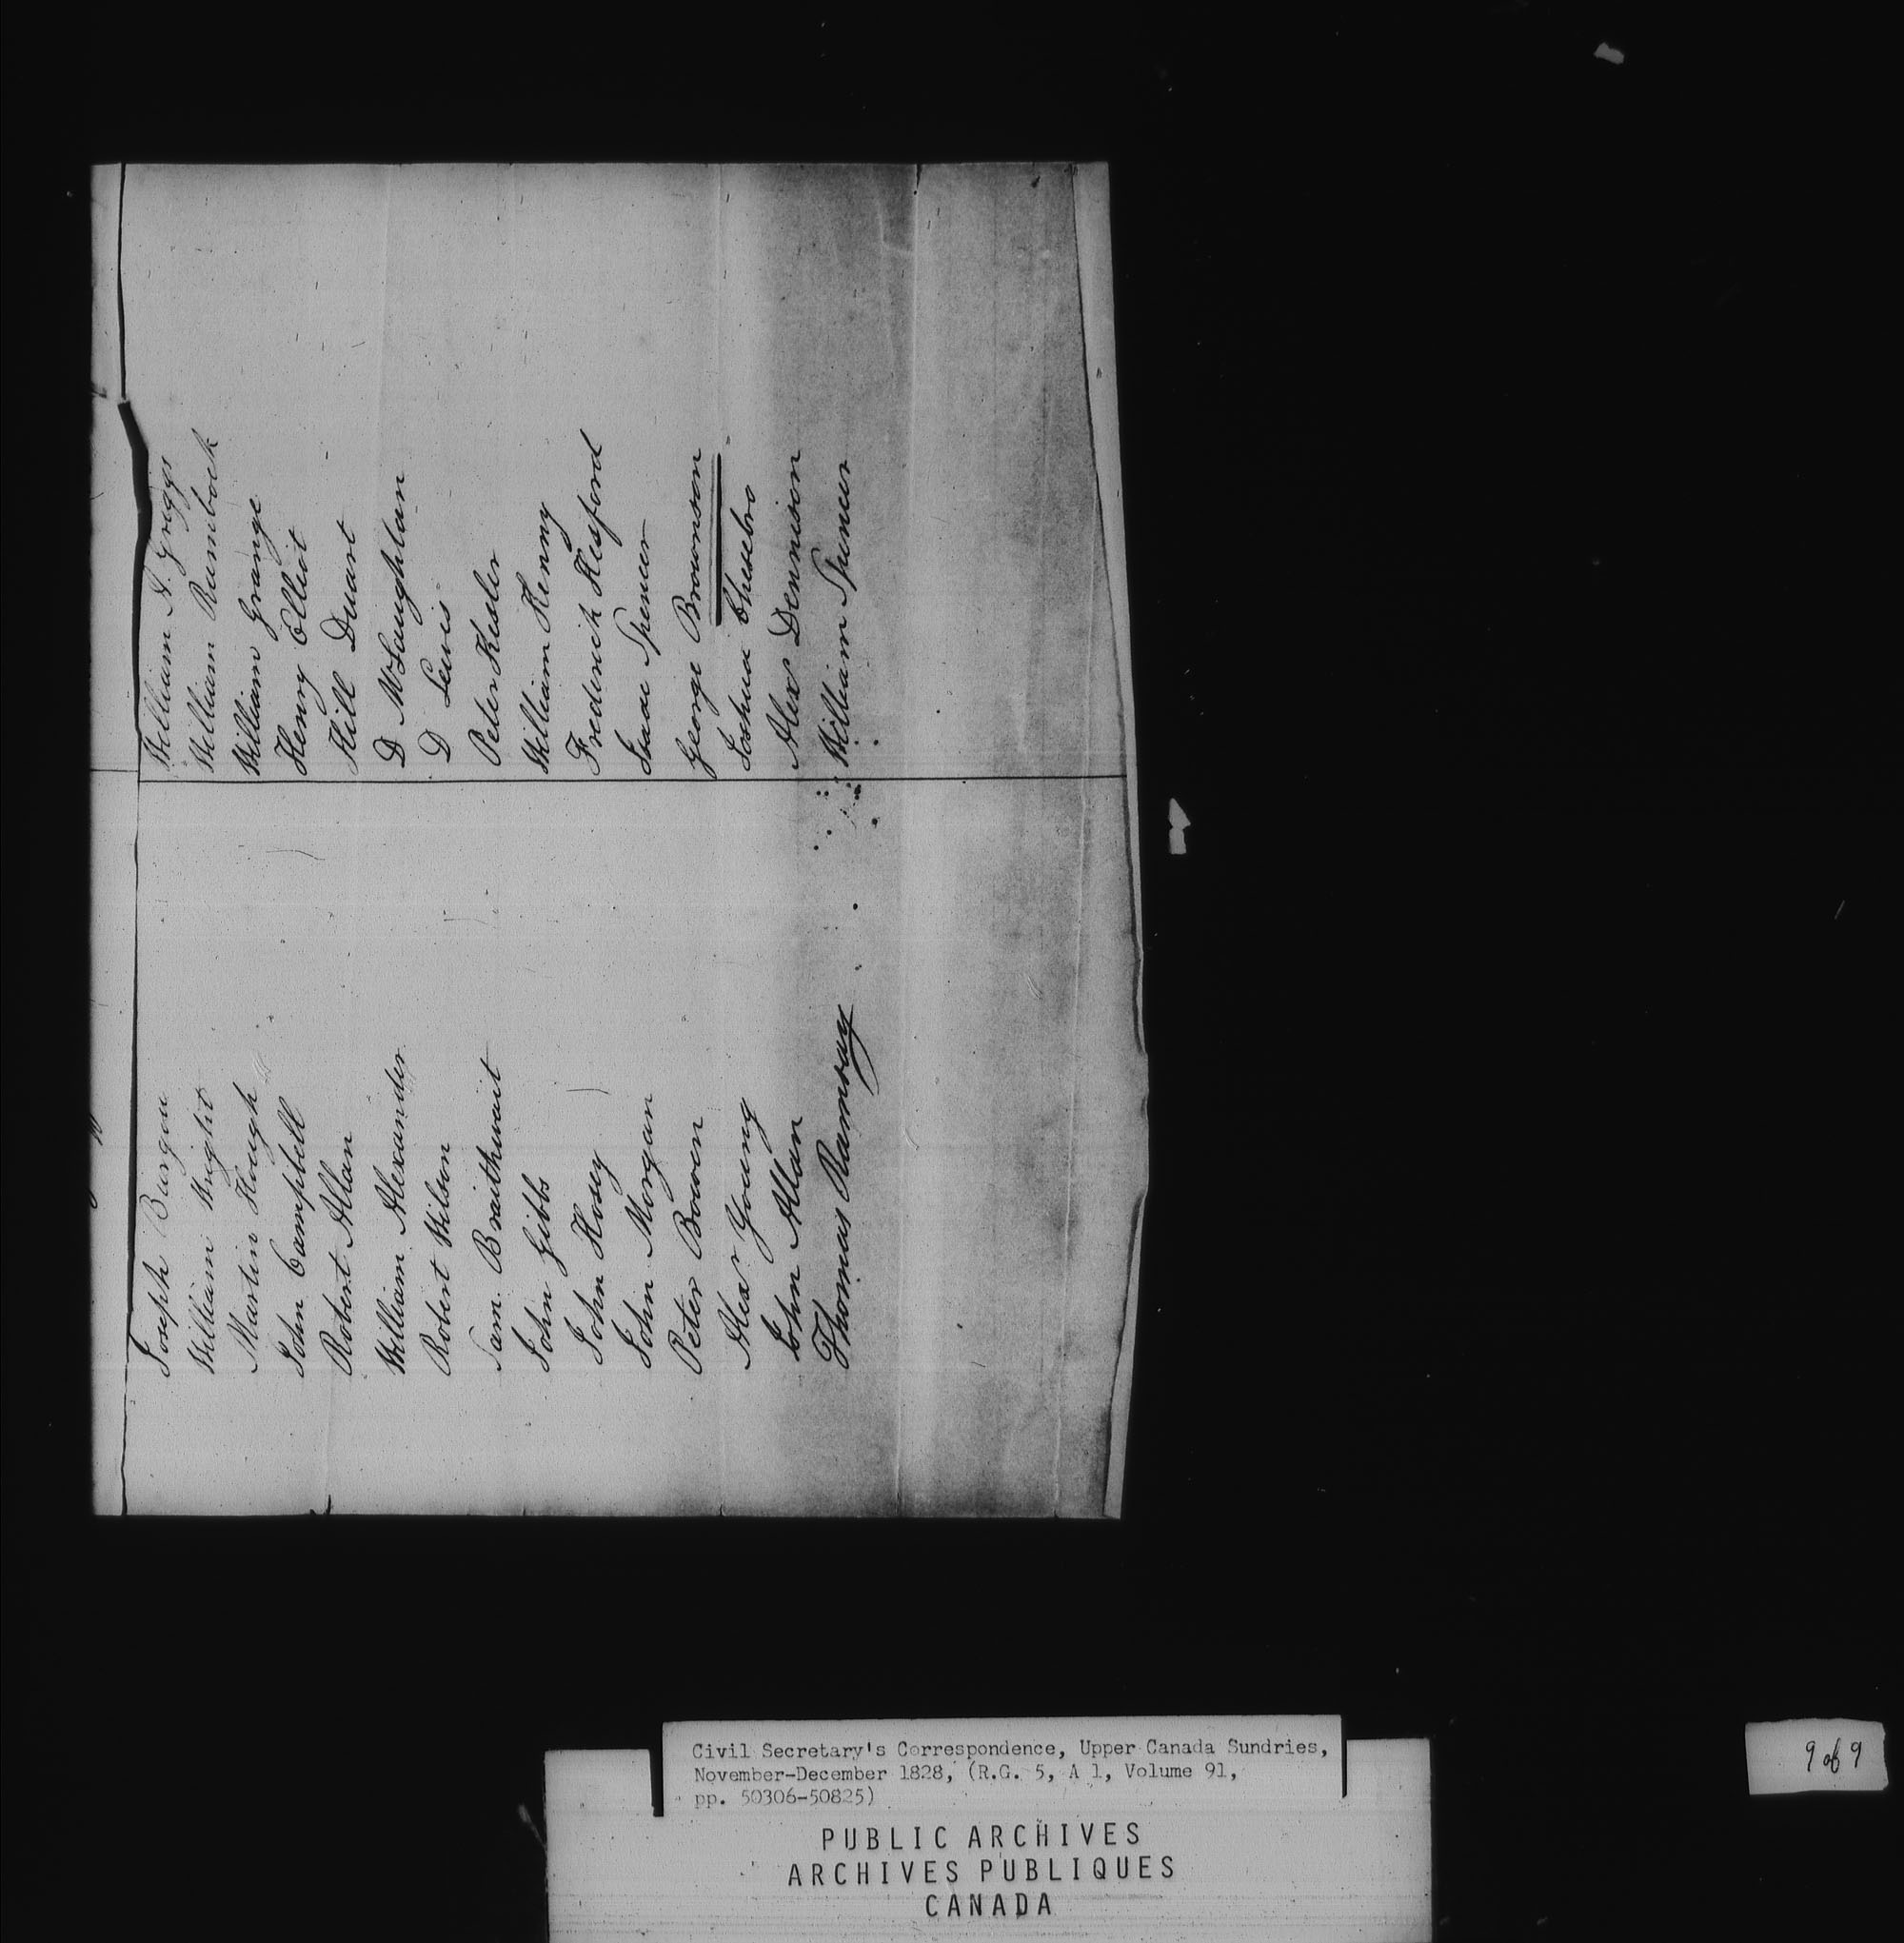 Joseph Burgin
William Wright
Martin Hough
John Campbell
Robert Allan
William Alexander
Robert Wilson
Sam. Braithwait
John Gibbs
John Hosey
John Morgan
Peter Bowen
Alexr Young
John Allan
Thomas Ramsay
William A. Griggs
William Rambock
William Grange
Henry Elliot
Hill Duart
D McLaughlan
D Lewis
Peter Kesler
William Kenny
Frederick Kesford
Isaac Spencer
George Brownson
Joshua Chesebro
Alex Dennison
William Spencer
Civil Secretary's Correspondence, Upper Canada Sundries,
November-December 1828, (R.G. 5, A 1, Volume 91,
pp. 50306-50825)
PUBLIC ARCHIVES
ARCHIVES PUBLIQUES
CANADA
9 of 9